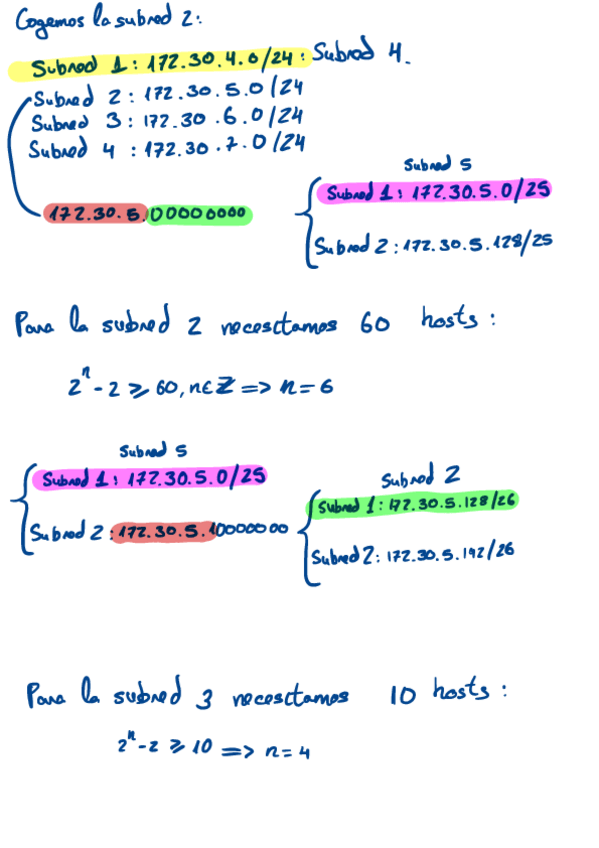 Cogemos la subred 2:
Subred 1: 172.30.4.0/24: Subred 4.
Subred 2: 172.30.5.0/24
Subred 3: 172.30.6.0/24
Subred 4: 172.30.7.0/24
Subred 5
Subred 1: 172.30.5.0/25
172.30.5.00000000
Subred 2: 172.30.5.128/25
Para la subred 2 necesitamos 60 hosts:
2^n - 2 ≥ 60, n∈Z => n = 6
Subred 5
Subred 1: 172.30.5.0/25
Subred 2: 172.30.5.10000000
Subred 2
Subred 1: 172.30.5.128/26
Subred 2: 172.30.5.192/26
Para la subred 3 necesitamos 10 hosts:
2^n - 2 ≥ 10 => n = 4